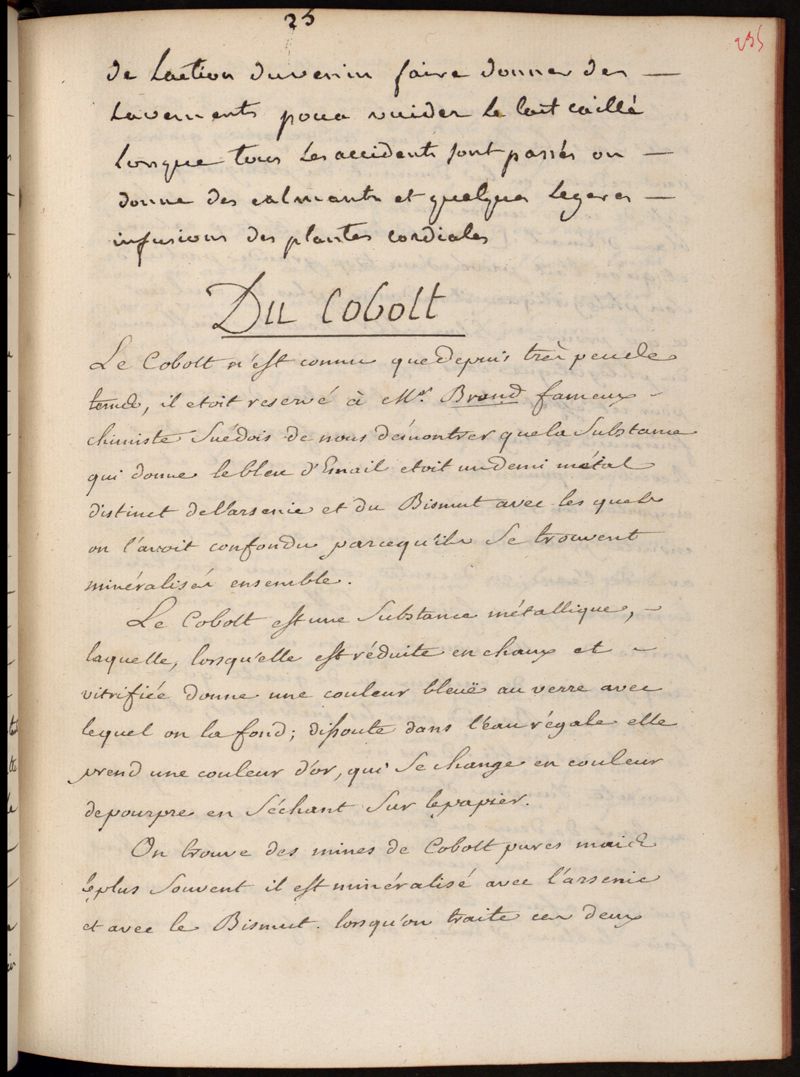 25
235
de Laction du venin faire donner des —
Lavements pour vuider le lait caillé
Lorsque tous les accidents sont passés on —
donne des calmants et quelques legeres —
infusions des plantes cordiales
Du Cobolt
Le Cobolt n'est connu que depuis très peu de
tems, il etoit reservé à Mr. Brand fameux -
chimiste Suédois de nous démontrer que la Substance
qui donne le bleu d'Email etoit un demi métal
distinct de l'arsenic et du Bismut avec les quels
on l'avoit confondu parcequ'ils se trouvent
minéralisés ensemble.
Le Cobolt est une Substance métallique, -
laquelle, lorsqu'elle est réduite en chaux et -
vitrifiée donne une couleur bleuë au verre avec
lequel on la fond; dissoute dans l'eau régale elle
prend une couleur d'or, qui se change en couleur
de pourpre en séchant sur le papier.
On trouve des mines de Cobolt pures mais
le plus souvent il est minéralisé avec l'arsenic
et avec le Bismut. lorsqu'on traite ces deux